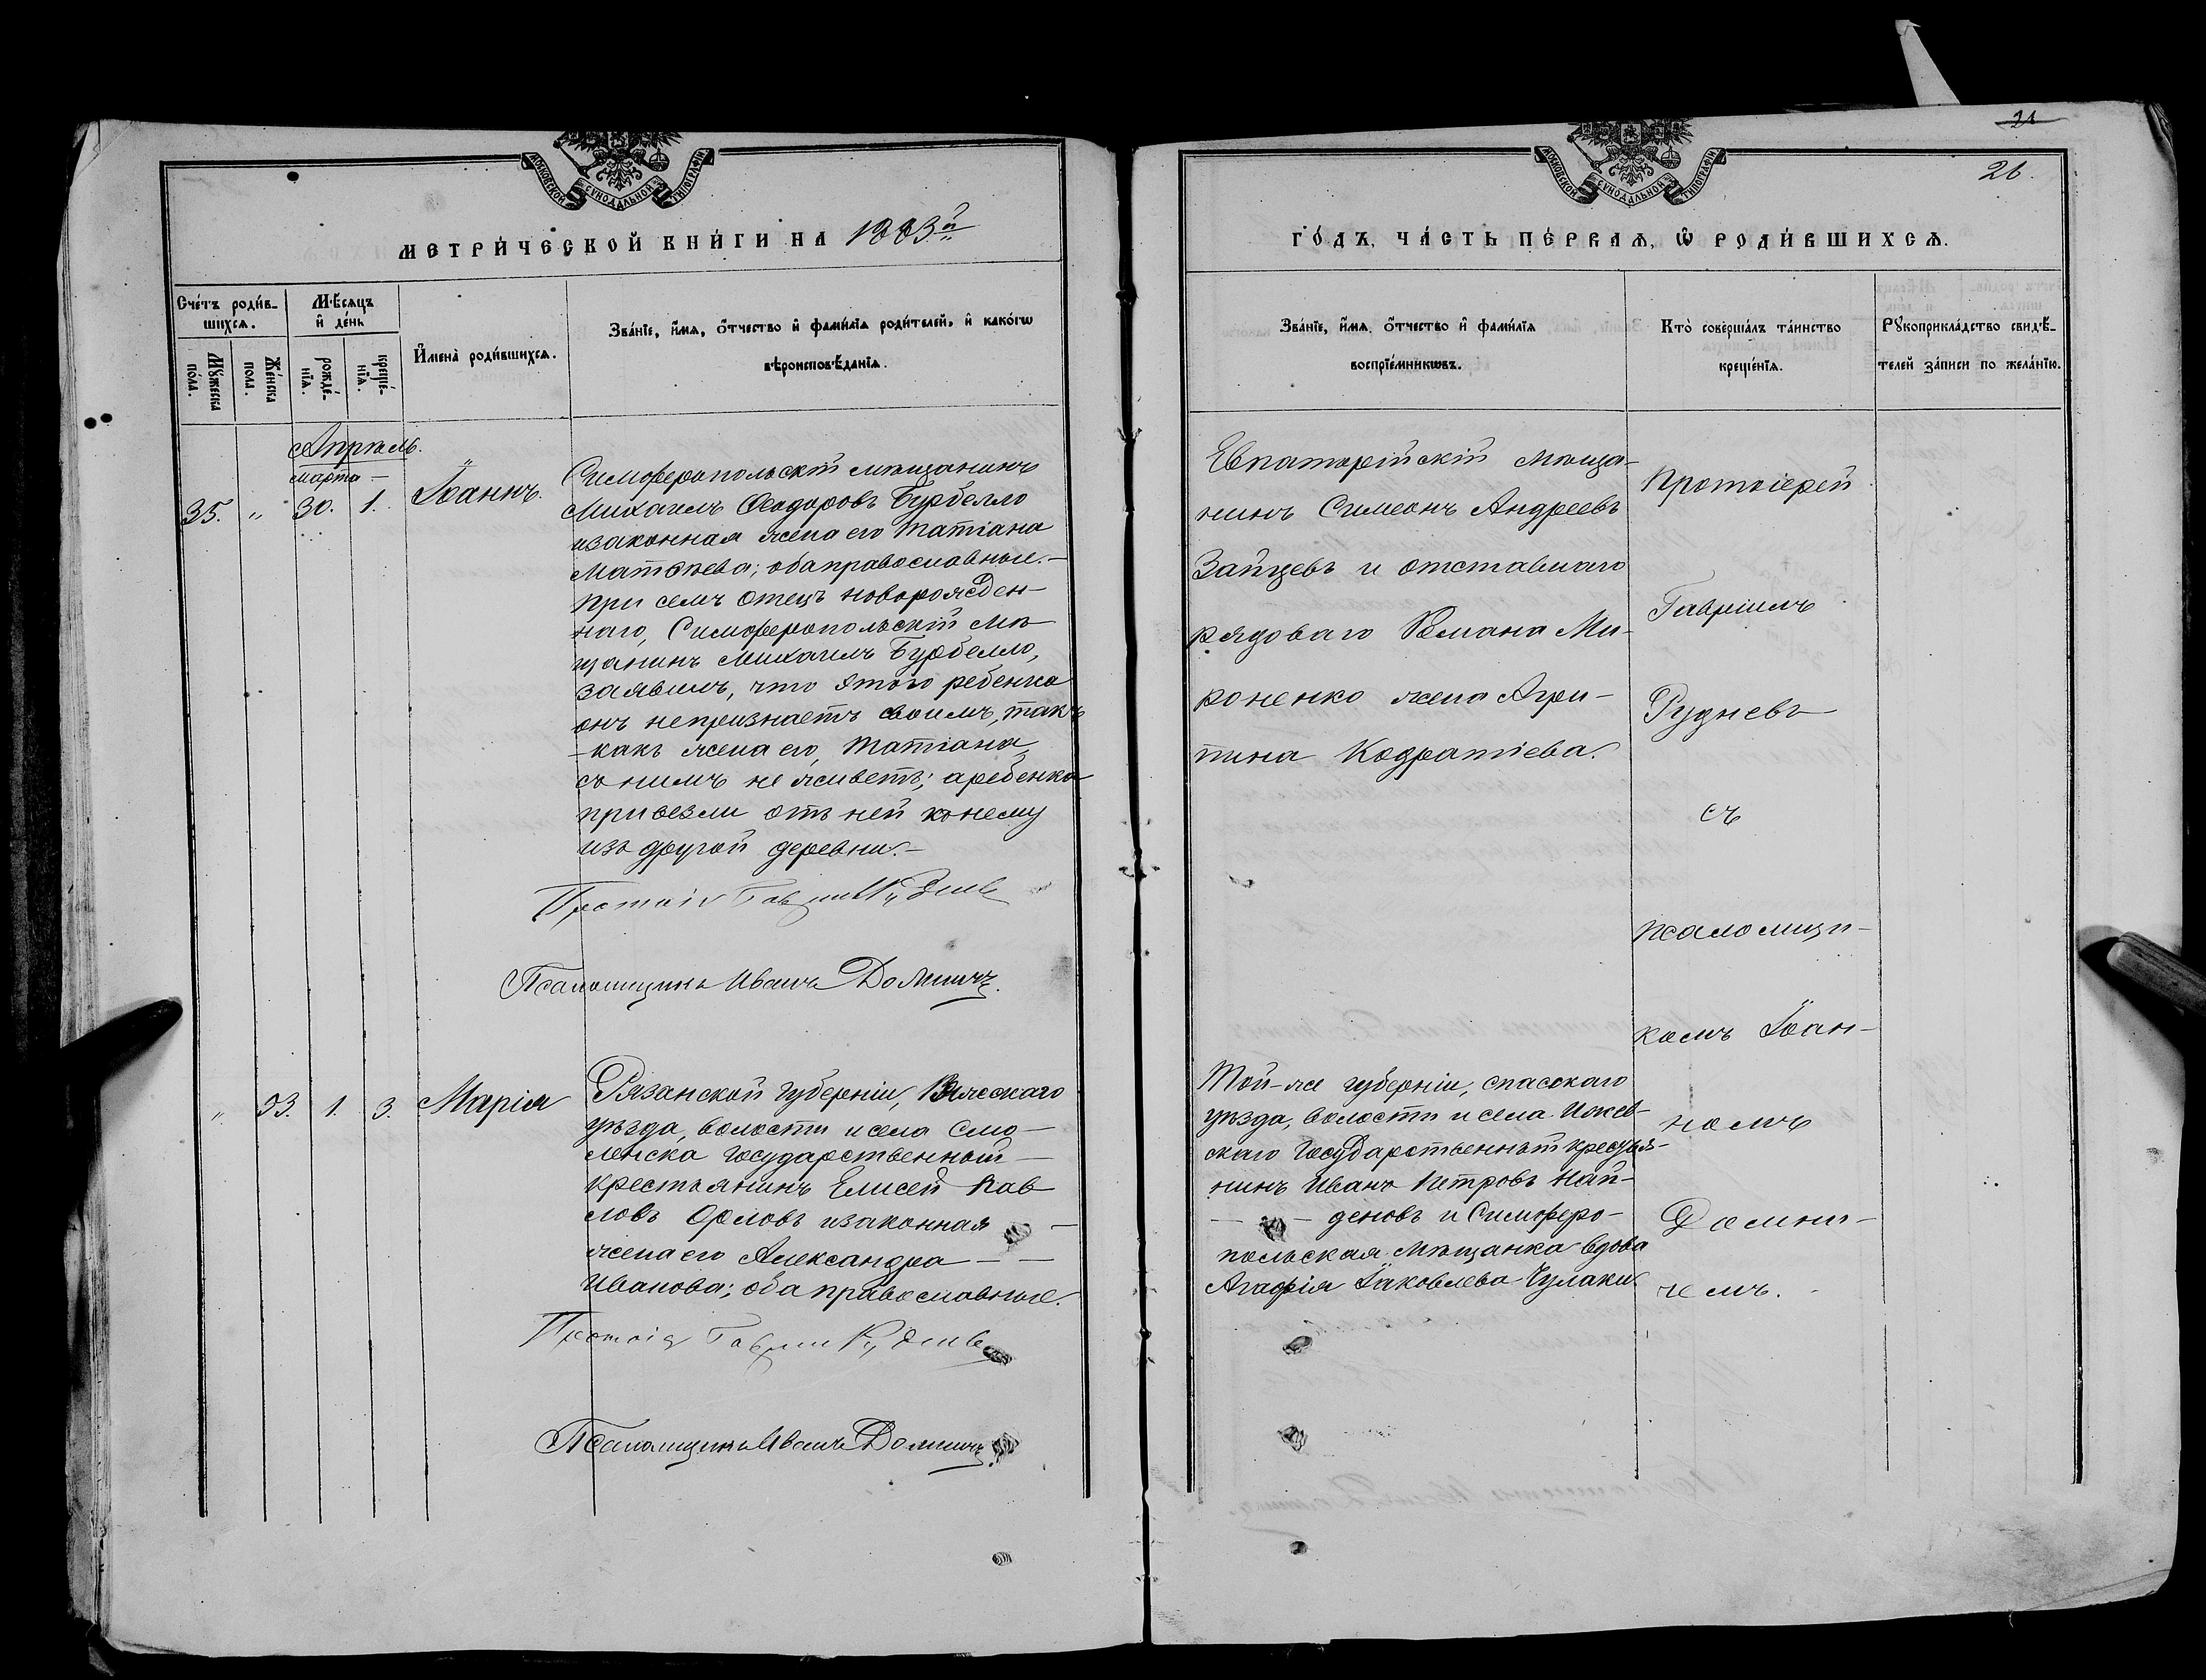 МОСКОВСКОЙ СѴНОДАЛЬНОЙ ТИПОГРАФІИ
МЕТРИ́ЧЕСКОЙ КНИ́ГИ НА 1883й
Сче́тъ роди́в-
шихсѧ.
Мѣ́сѧцъ
и҆ де́нь
Мꙋ́жеска
по́ла.
Же́нска
пола.
рожде́-
нїѧ.
креще́-
нїѧ.
И҆мена̀ роди́вшихсѧ.
Зва́нїе, и҆́мѧ, ѻ҆́тчество и҆ фами́лїѧ роди́телей, и҆ како́гѡ
вѣроисповѣ́данїѧ.
Апрѣль.
марта
35. „ 30. 1. Іоаннъ.
Симферопольскій мѣщанинъ
Михаилъ Ѳеодоровъ Бурбелло
изаконная жена его Татіана
Матѳѣева; оба православные.-
При семъ отецъ новорожден-
наго, Симферопольскій мѣ
щанинъ Михаилъ Бурбелло,
заявилъ, что этого ребенка
онъ непризнаетъ своимъ, такъ
-какъ жена его, Татіана,
съ нимъ не живетъ; аребенка
привезли отъ ней къ нему
изъ другой деревни.-
Протоіе Гавріил Рудневъ
Псаломщикъ Иванъ Доминичъ.
„ 33. 1. 3. Марія
Рязанской губерніи, Ряжскаго
уѣзда, волости и села Смо-
ленска Государственный
крестьянинъ Елисей Пав
ловъ Орловъ изаконная -
жена его Александра - -
Иванова; оба православные.
Протоіе Гавріил Рудневъ
Псаломщикъ Иванъ Доминичъ.
21
МОСКОВСКОЙ СѴНОДАЛЬНОЙ ТИПОГРАФІИ
26.
ГО́ДЪ, ЧА́СТЬ ПЕ́РВАѦ, Ѡ҆ РОДИ́ВШИХСѦ.
Зва́нїе, и҆́мѧ, ѻ҆́тчество и҆ фами́лїѧ
воспрїе́мникѡвъ.
Кто̀ соверша́лъ та́инство
креще́нїѧ.
Рꙋкоприкла́дство свидѣ́-
телей за́писи по жела́нїю.
Евпаторійскій мѣща-
нинъ Симеонъ Андреевъ
Зайцевъ и отставнаго
рядоваго Романа Ми-
роненко жена Агри-
пина Кодратіева.
Протоіерей
Гавріилъ
Рудневъ
съ
псаломщи-
комъ Іоан-
номъ
Домини-
чемъ.
Той-же губерніи, спасскаго
уѣзда, волости и села Ижев-
скаго Государственный кресть­я-
нинъ Иванъ Петровъ Най-
- - деновъ и Симферо-
польская мѣщанка вдова
Агафія Іаковлева Чулаки